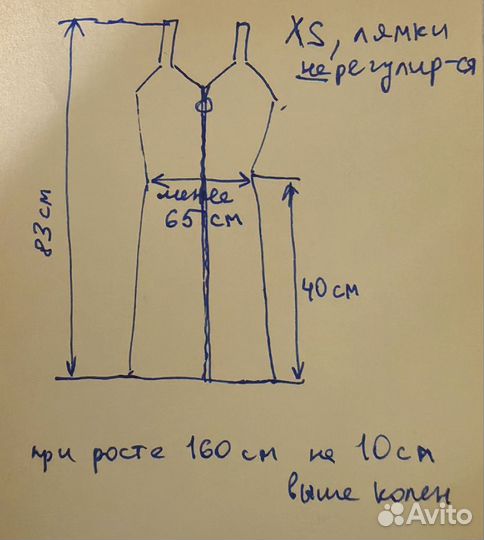 XS, лямки
нерегулир-ся
83 см
менее
65 см
40 см
при росте 160 см на 10 см
выше колен
Avito